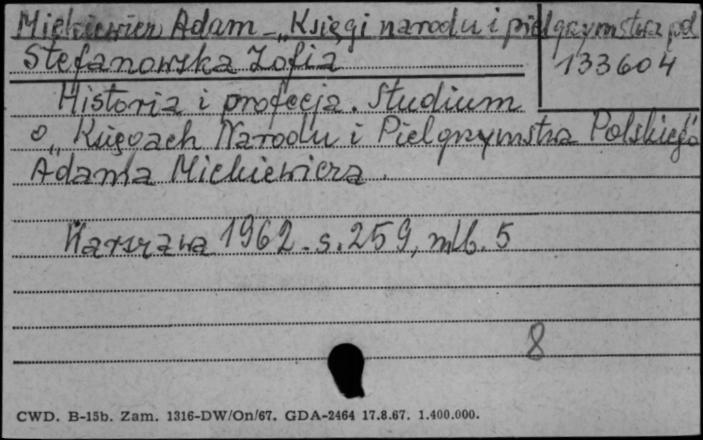 Mickiewicz Adam - „Księgi narodu i pielgrzymstwa pol
Stefanowska Zofia
133604
Historia i profecja. Studium
o „Księgach Narodu i Pielgrzymstwa Polskiego"
Adama Mickiewicza.
Warszawa 1962. s. 259, nlb. 5
8
CWD. B-15b. Zam. 1316-DW/On/67. GDA-2464 17.8.67. 1.400.000.